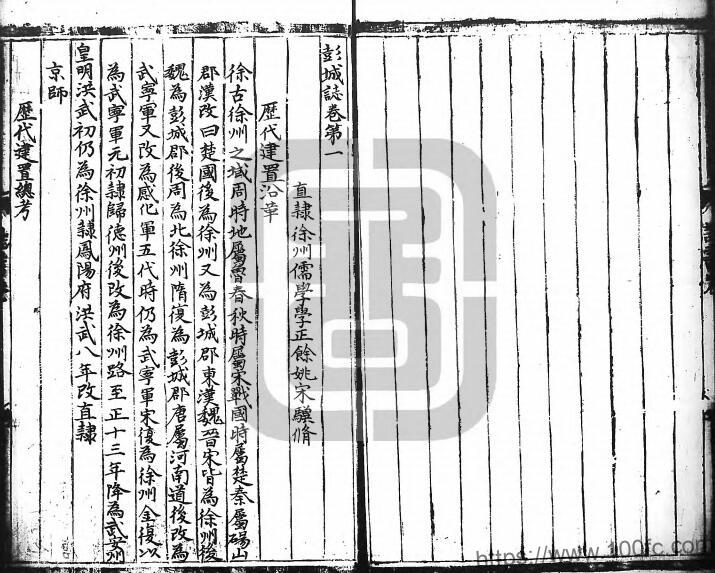 彭城誌卷第一
直隷徐州儒學學正餘姚宋驥脩
歷代建置沿革
徐古徐州之域周時地屬魯春秋時屬宋戰國時屬楚秦屬碭山
郡漢改曰楚國後為徐州又為彭城郡東漢魏晉宋皆為徐州後
魏為彭城郡後周為北徐州隋復為彭城郡唐屬河南道後改為
武寧軍又改為感化軍五代時仍為武寧軍宋復為徐州金復以
為武寧軍元初隷歸德州後改為徐州路至正十三年降為武安州
皇明洪武初仍為徐州隷鳳陽府洪武八年改直隷
京師
歷代建置總考
https://www.100fc.com